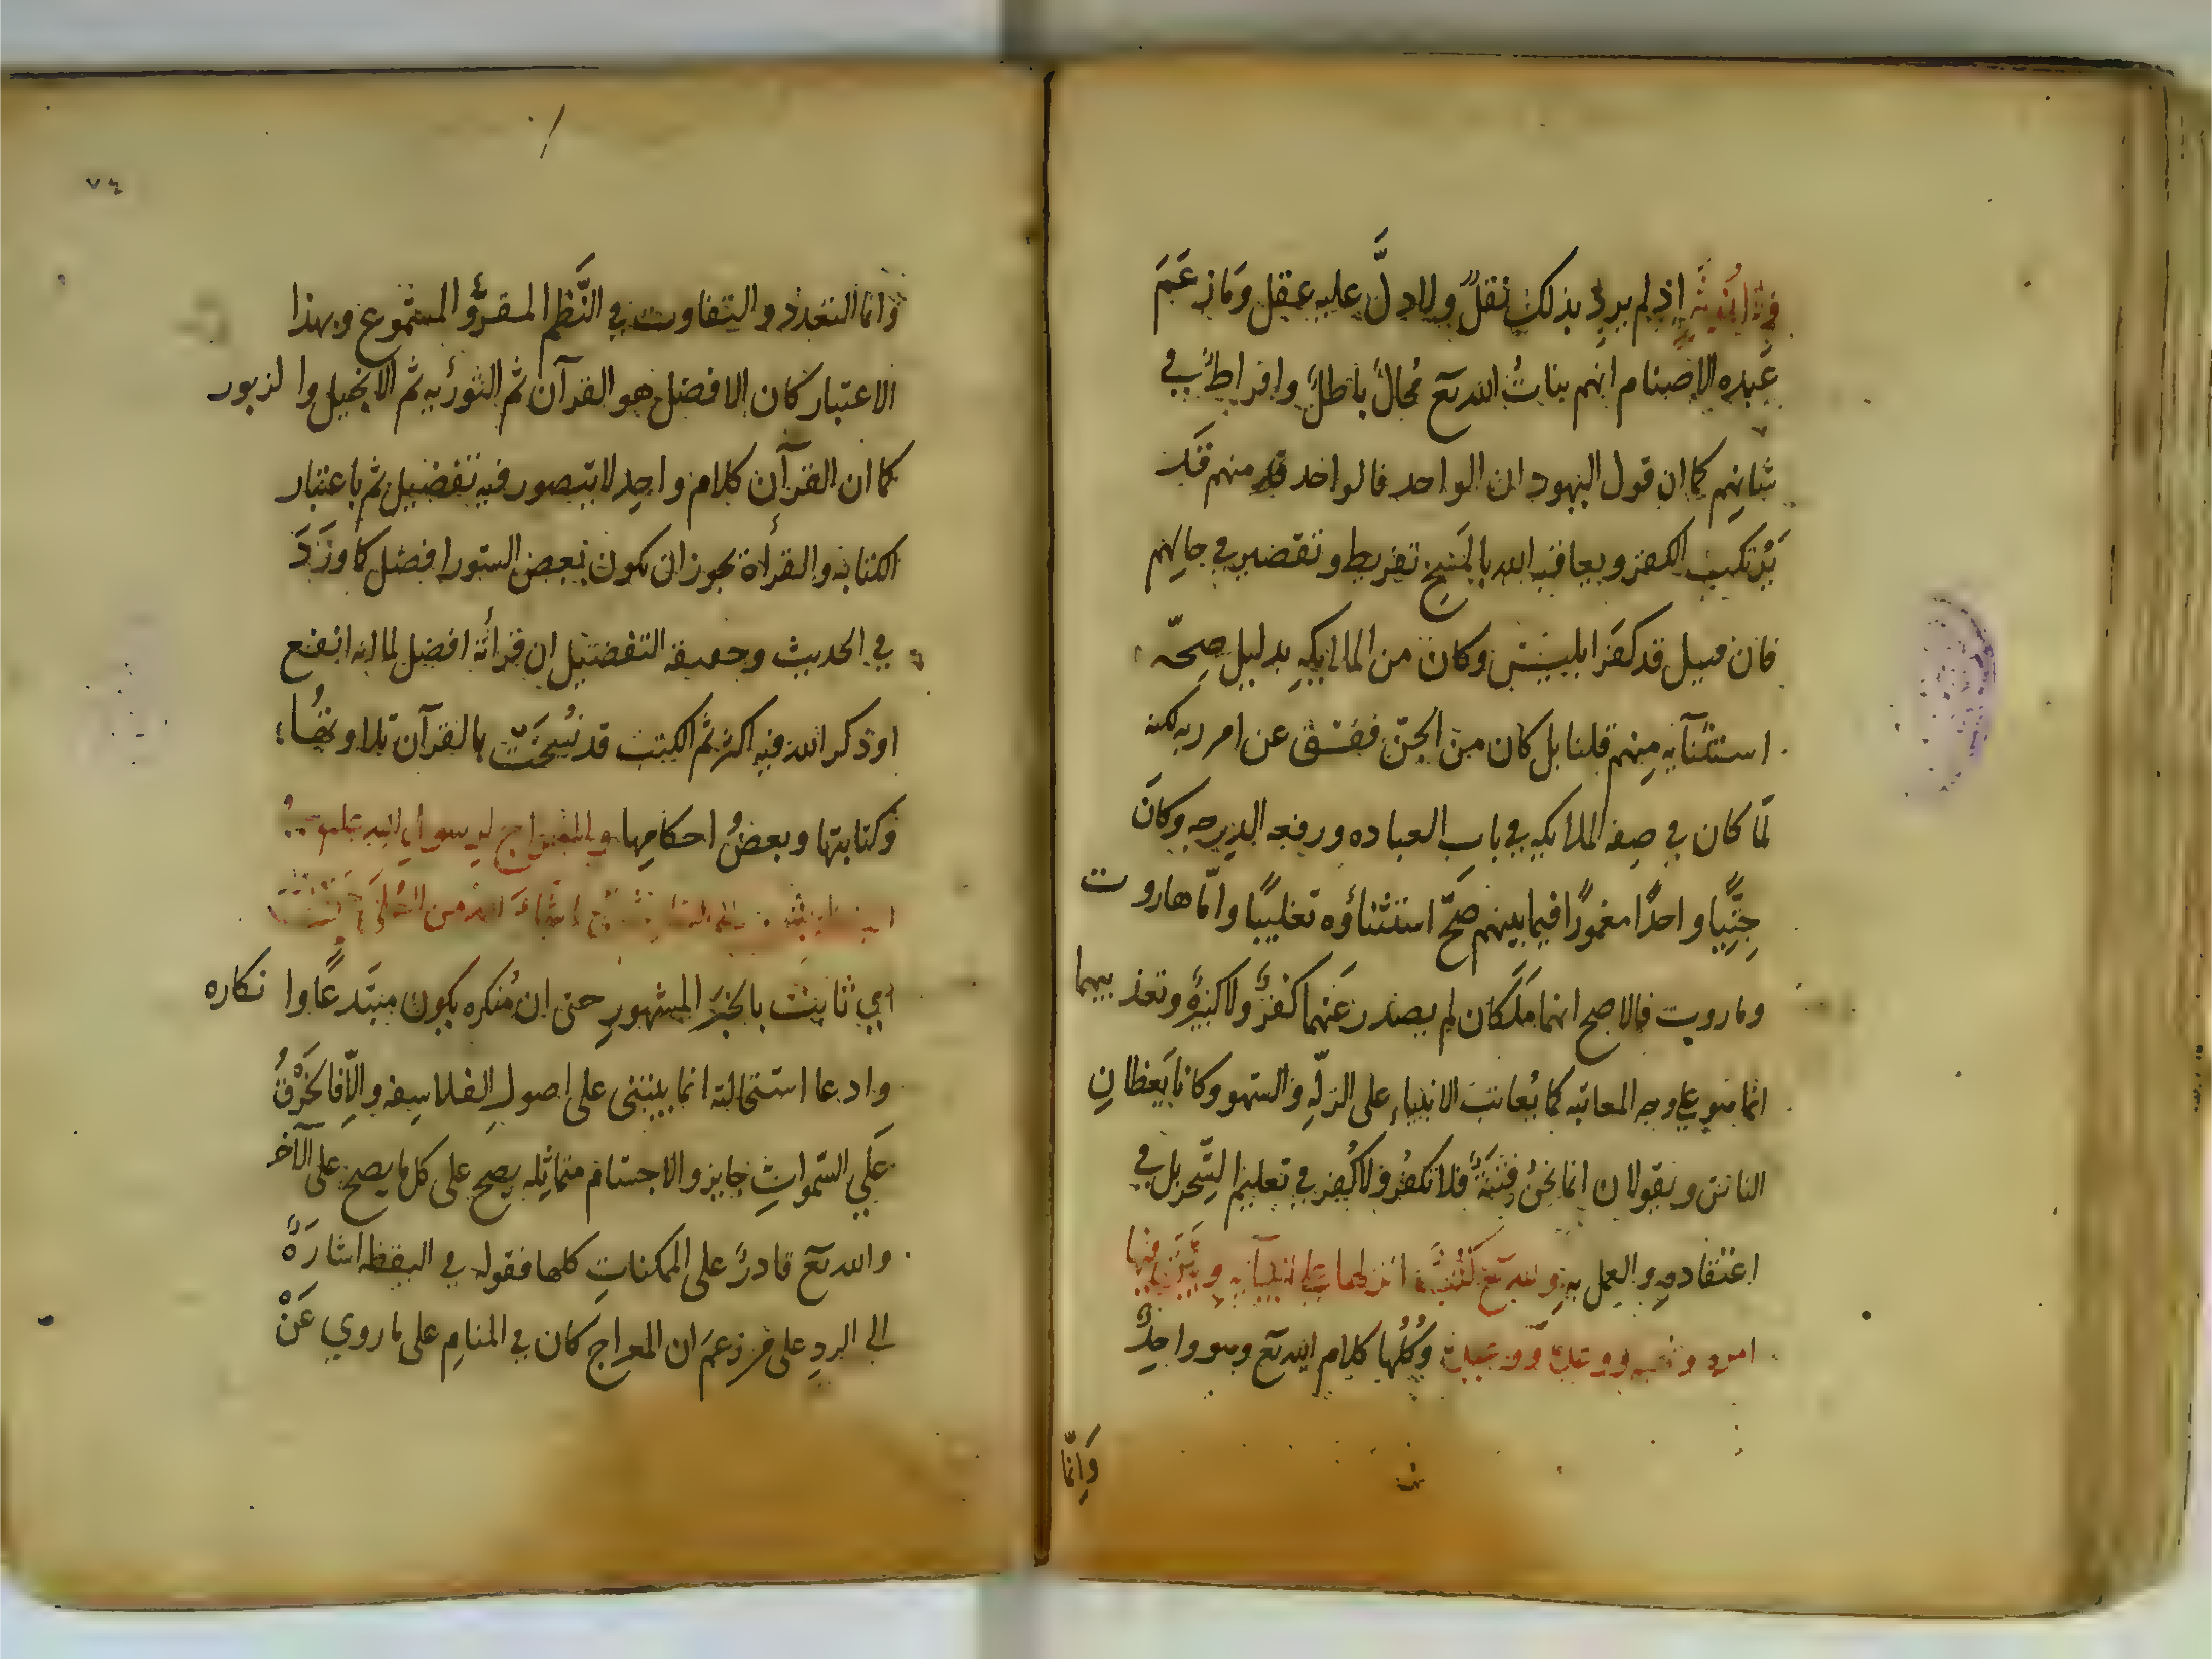 ولا انوثة اذ لم يرد بذلك نقلٌ ولا دلَّ عليه عقل وما زعَمَ
عَبَده الاصنام انهم بناتُ الله تع مُحالٌ باطلٌ وافراطٌ في
شانهم كما ان قول اليهود ان الواحد فالواحد منهم قَد
يَرْتكب الكفر ويعاقبه الله بالمَسْخ تفريط وتقصير في حالهم
فان قيل قد كفَر ابليس وكان من الملايكهِ بدليل صِحّه
استثنآيه مِنهم قلنا بل كان من الجنّ ففسق عن امر ربه لكنه
لمّا كان في صفه الملايكه في باب العباده ورفعه الدرجه وكانَ
جِنِّيًا واحدًا مغمورًا فيما بينهم صَحّ استثناؤه تغليبًا وامّا هاروت
وماروت فالاصح انهما مَلَكان لم يصدر عَنهما كفرٌ ولا كبيرةٌ وتعذيبهما
انما هو على وجه المعاتبه كما يُعاتبَ الانبياء على الزلّهِ والسهو وكانا يَعِظانِ
الناس ويقولان انما نحنُ فتنةٌ فلا تكفُر ولا كُفر في تعليم السّحر بل في
اعتقادهِ والعمل بهِ ولله تع كُتُبٌ انزلها على انبيآيه وبَيَّن فيها
امره ونهيه ووعده ووعيده وكُلُّها كلام الله تع وهو واحِدٌ
وَانّما
٧٤
وانما التعدد والتفاوت في النَّظم المقرُوّ المسمُوع وبهذا
الاعتبار كان الافضل هو القرآن ثم التورٰيه ثم الانجيل والزبور
كما ان القرآن كلام واحِد لا يتصور فيه تفضيل ثم باعتبار
الكتابه والقرأة يجوز ان يكون بعض السور افضل كما وَرَدَ
في الحديث وحقيقه التفضيل ان قرأتَه افضل لما انه انفع
او ذكر الله فيه اكثر ثم الكتب قد نُسِخَتْ بالقرآن تلاوتُها
وكتابتها وبعضُ احكامها والمعراج لرسول الله عليه
اي ثابت بالخبَر المشهورِ حتى ان مُنكره يكون مبتَدعًا وانكاره
وادعا استحالته انما يبتنى على اصولِ الفلاسِفه والّا فالخَرْقُ
علَى السّمواتِ جايز والاجسام متماثله يصح على كل ما يصح على الآخر
والله تع قادرٌ على الممكناتِ كلها فقوله في اليقظه اشارَةٌ
الى الردِ على من زعمَ ان المعراج كان في المنام على ما روي عَنْ